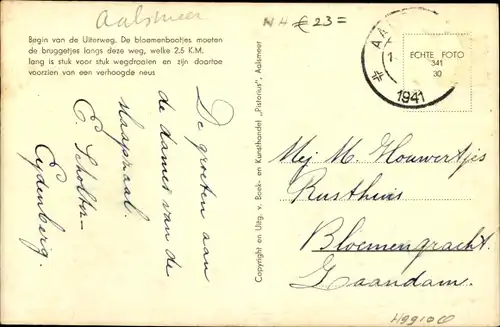 Aalsmeer
NH € 23=
Begin van de Uiterweg. De bloemenbootjes moeten
de bruggetjes langs deze weg, welke 2.5 K.M.
lang is stuk voor stuk wegdraaien en zijn daartoe
voorzien van een verhoogde neus
De groeten aan
de dames van de
naaizaal.
E. Scholten-
Eydenberg.
Copyright en Uitg. v. Boek- en Kunsthandel „Pistorius", Aalsmeer
AA
1
1941
ECHTE FOTO
341
30
Mej M. Houwertjes
Rusthuis
Bloemengracht.
Zaandam.